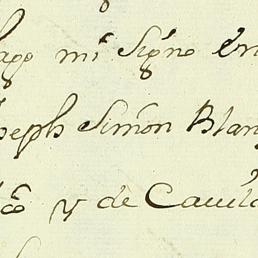 hago mi signo en
Joseph Simon Blan
y de Cavil